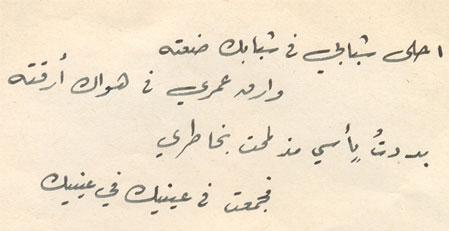 احلى شبابي في شبابك ضعته
وارق عمري في هواك أرقته
بددتُ يأسي مذ لمحت بخاطري
فجمعت في عينيك في عينيك